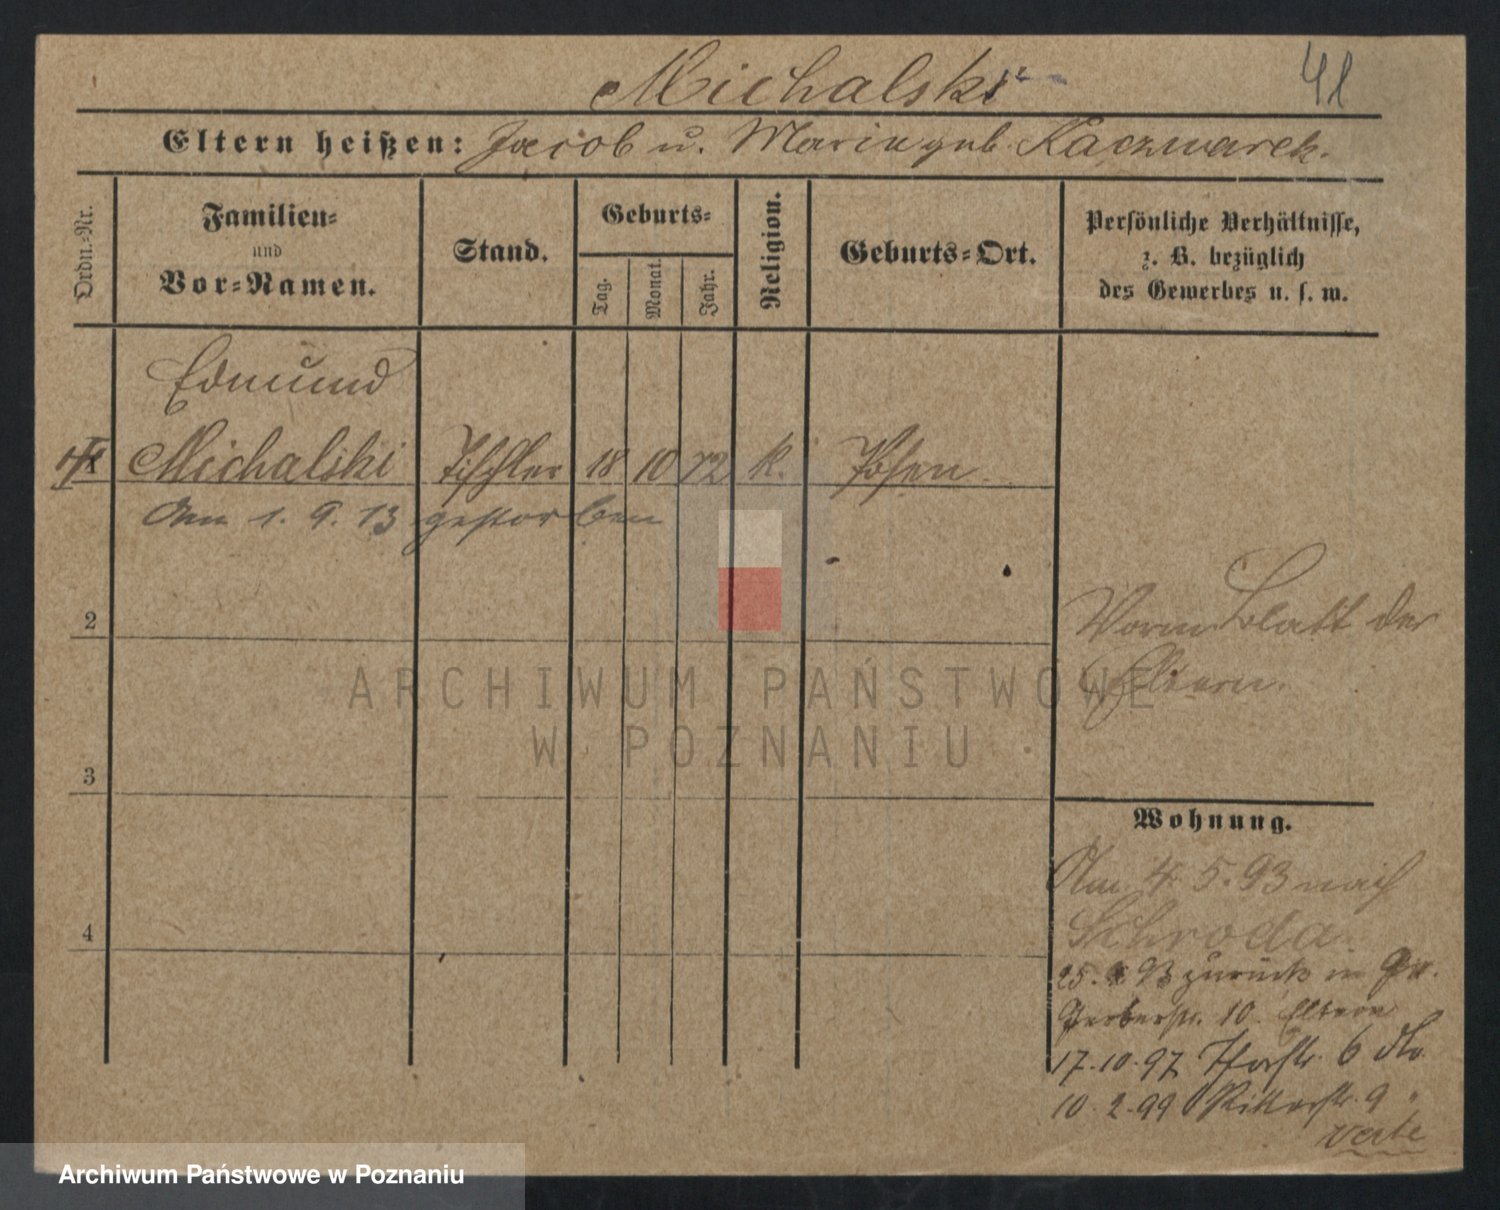 Michalski
41
Eltern heißen: Jacob u. Maria geb. Kaczmarek.
Ordn.-Nr.
Familien-
und
Vor-Namen.
Stand.
Geburts-
Tag.
Monat.
Jahr.
Religion.
Geburts-Ort.
Persönliche Verhältnisse,
z. B. bezüglich
des Gewerbes u. s. w.
Edmund
Michalski Tischler 18 10 72 k. Posen.
Am 1. 9. 13 gestorben
2
Vorm Blatt der
Eltern.
ARCHIWUM PAŃSTWOWE
W POZNANIU
3
Wohnung.
Am 4. 5. 93 nach
Schroda.
4
25. 93 zurück in
Gerberstr. 10. Eltern
17. 10. 97 6
10. 2. 99 Ritterstr. 9 "
verte
Archiwum Państwowe w Poznaniu